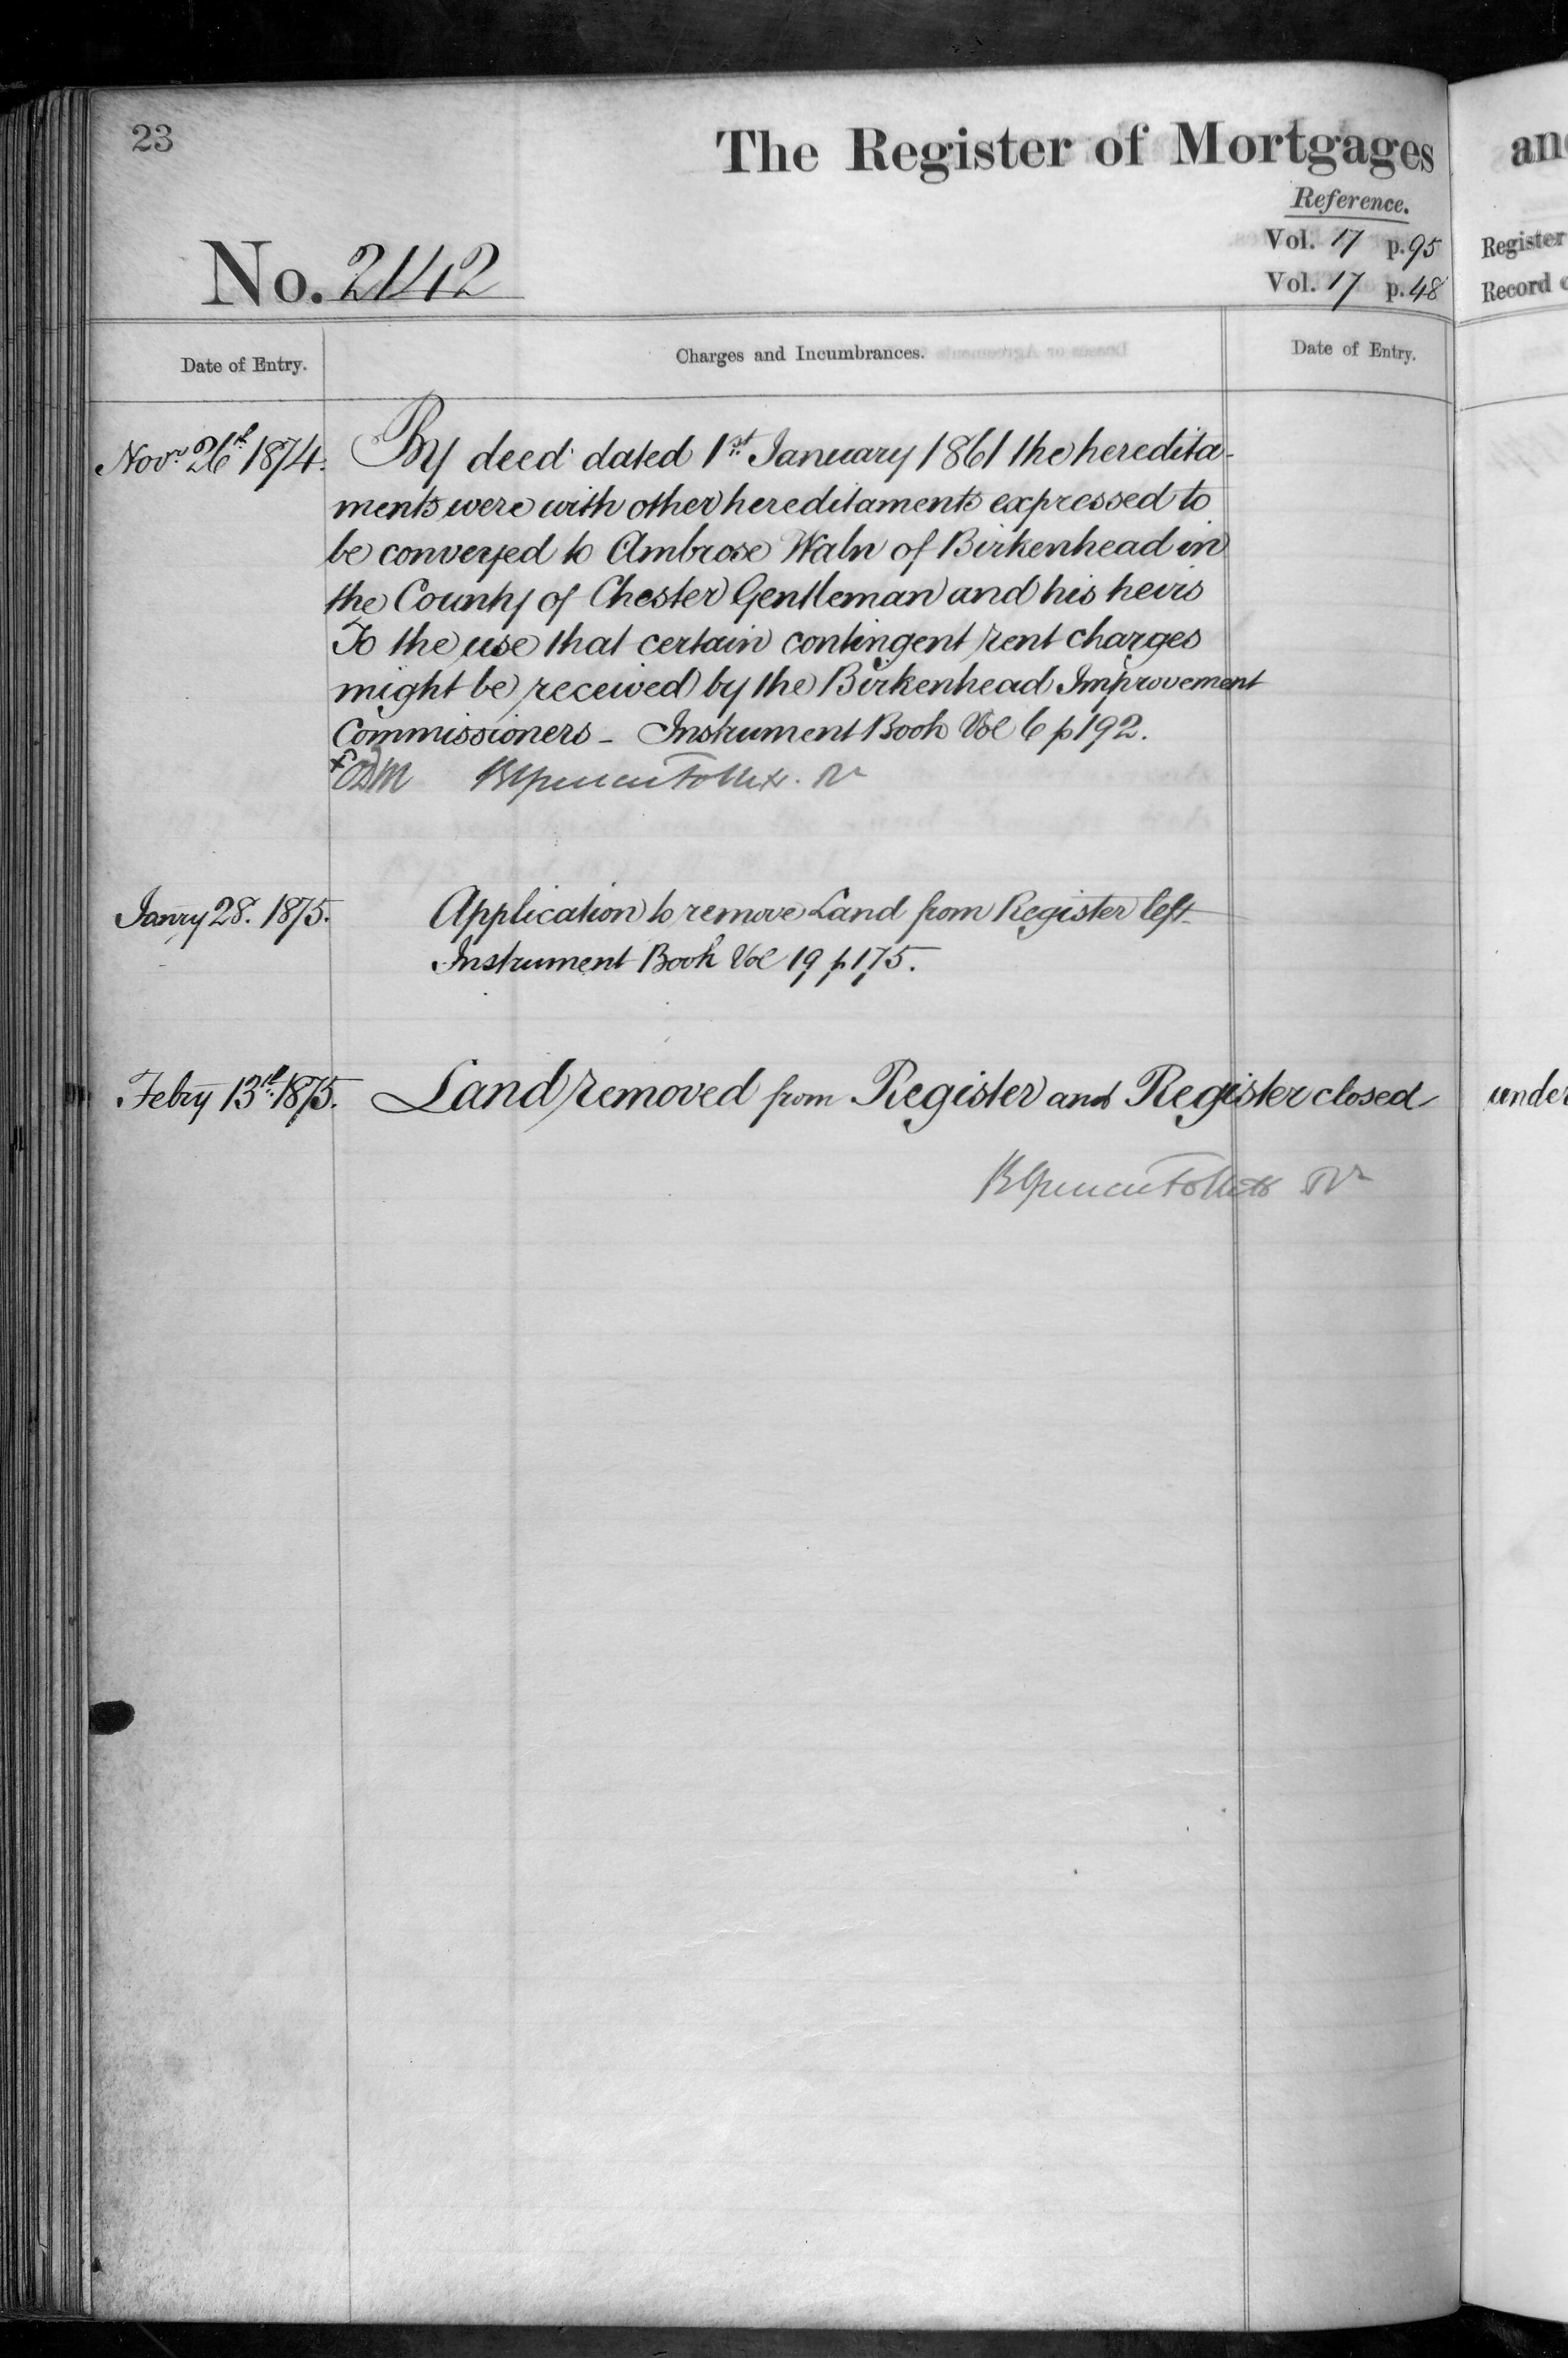 23
The Register of Mortgages
an
Reference.
Vol. 17 p. 95
Register
Vol. 17 p. 48
Record
No. 2142
Date of Entry.
Charges and Incumbrances.
Date of Entry.
Novr. 26th 1874. By deed dated 1st January 1861 the heredita-
ments were with other hereditaments expressed to
be conveyed to Ambrose Waln of Birkenhead in
the County of Chester Gentleman and his heirs
To the use that certain contingent rent charges
might be received by the Birkenhead Improvement
Commissioners – Instrument Book Vol 6 p 192.
Janry 28. 1875. Application to remove Land from Register left
Instrument Book Vol 19 p 175.
Febry 13th 1875. Land removed from Register and Register closed
under